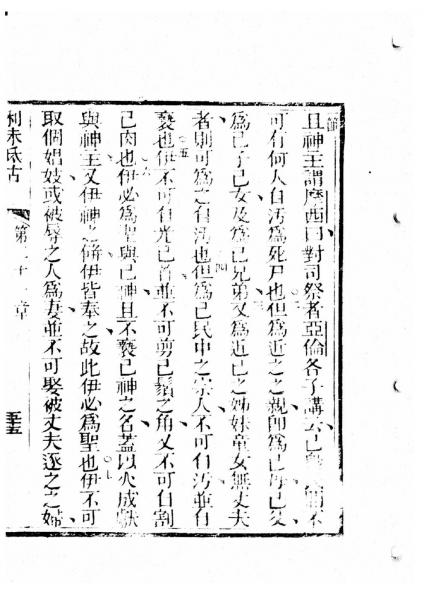 且神主謂摩西曰對司祭者亞倫各子講云己民 不
可有何人自汚爲死尸也但爲近之之親即爲己母己父
爲己子己女及爲己兄弟又爲近己之姊妹童女無丈夫
者則可爲之自汚也但爲己民中之宗人不可自汚並自
褻也伊不可自光己首並不可剪己鬚之角又不可自割
己肉也伊必爲聖與己神且不褻己神之名蓋以火成獻
與神主又伊神之餅伊皆奉之故此伊必爲聖也伊不可
取個娼妓或被辱之人爲妻並不可娶被丈夫逐之之婦
利未氏古
第二十一章
五十五